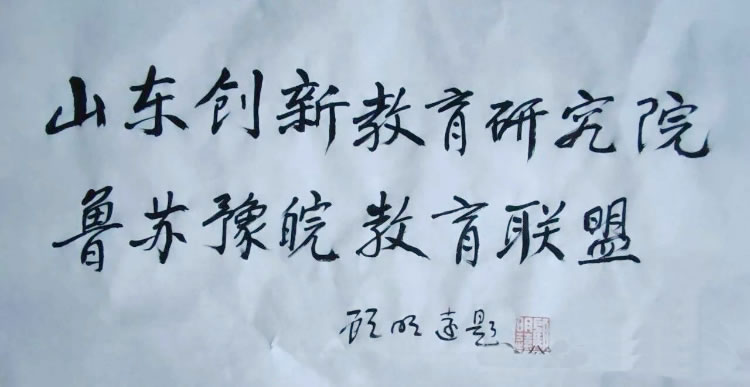 山东创新教育研究院
鲁苏豫皖教育联盟
顾明远题